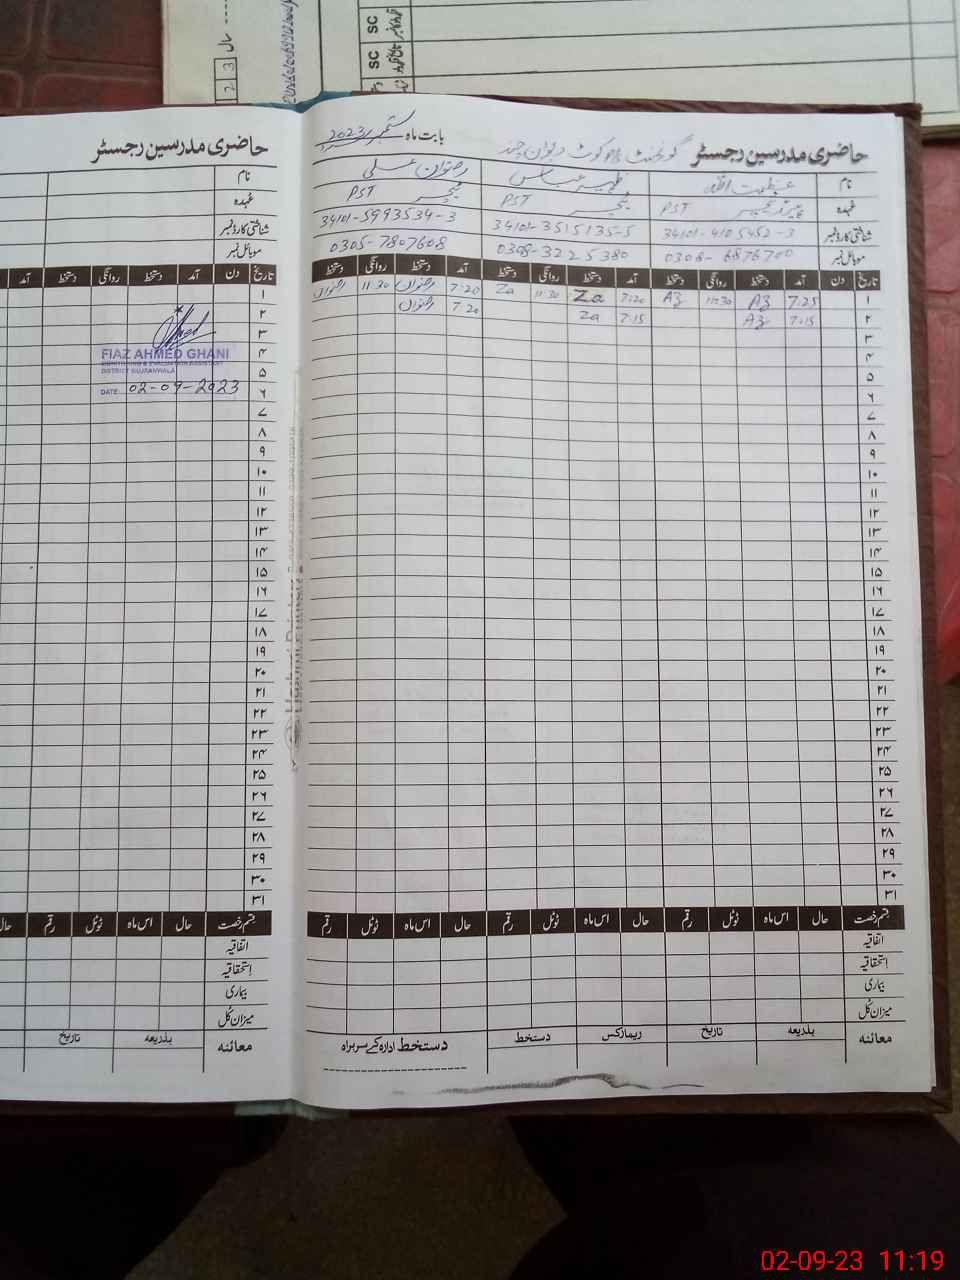 حاضری مدرسین رجسٹر گورنمنٹ کوٹ دیوان چند بابت ماہ ستمبر 2023
نام عظمت اظہر ظہیر عباس رضوان علی
عہدہ ٹیچر PST ٹیچر PST ٹیچر PST
شناختی کارڈ نمبر 34101-4105452-3 34101-3515135-5 34101-5993534-3
موبائل نمبر 0308-6876700 0308-3225380 0305-7807608
تاریخ دن آمد دستخط روانگی دستخط آمد دستخط روانگی دستخط آمد دستخط روانگی دستخط
۱ 7:25 Az 11:30 Az 7:20 Za 11:30 Za 7:20 رضوان 11:30 رضوان
۲ 7:15 Az 7:15 Za 7:20 رضوان
۳
۴
۵
۶
۷
۸
۹
۱۰
۱۱
۱۲
۱۳
۱۴
۱۵
۱۶
۱۷
۱۸
۱۹
۲۰
۲۱
۲۲
۲۳
۲۴
۲۵
۲۶
۲۷
۲۸
۲۹
۳۰
۳۱
قسم رخصت حال اس ماہ ٹوٹل رقم حال اس ماہ ٹوٹل رقم
اتفاقیہ
استحقاقیہ
بیماری
میزان کل
معائنہ بذریعہ تاریخ ریمارکس دستخط دستخط ادارہ کے سربراہ
حاضری مدرسین رجسٹر
نام
عہدہ
شناختی کارڈ نمبر
موبائل نمبر
تاریخ دن آمد دستخط روانگی دستخط آمد
۱
۲
۳
۴
۵
۶
۷
۸
۹
۱۰
۱۱
۱۲
۱۳
۱۴
۱۵
۱۶
۱۷
۱۸
۱۹
۲۰
۲۱
۲۲
۲۳
۲۴
۲۵
۲۶
۲۷
۲۸
۲۹
۳۰
۳۱
FIAZ AHMED GHANI
MONITORING & EVALUATION ASSISTANT
DISTRICT GUJRANWALA
DATE: 02-09-2023
قسم رخصت حال اس ماہ ٹوٹل رقم حال
اتفاقیہ
استحقاقیہ
بیماری
میزان کل
معائنہ بذریعہ تاریخ
سال
2 3
SC
SC
02-09-23 11:19